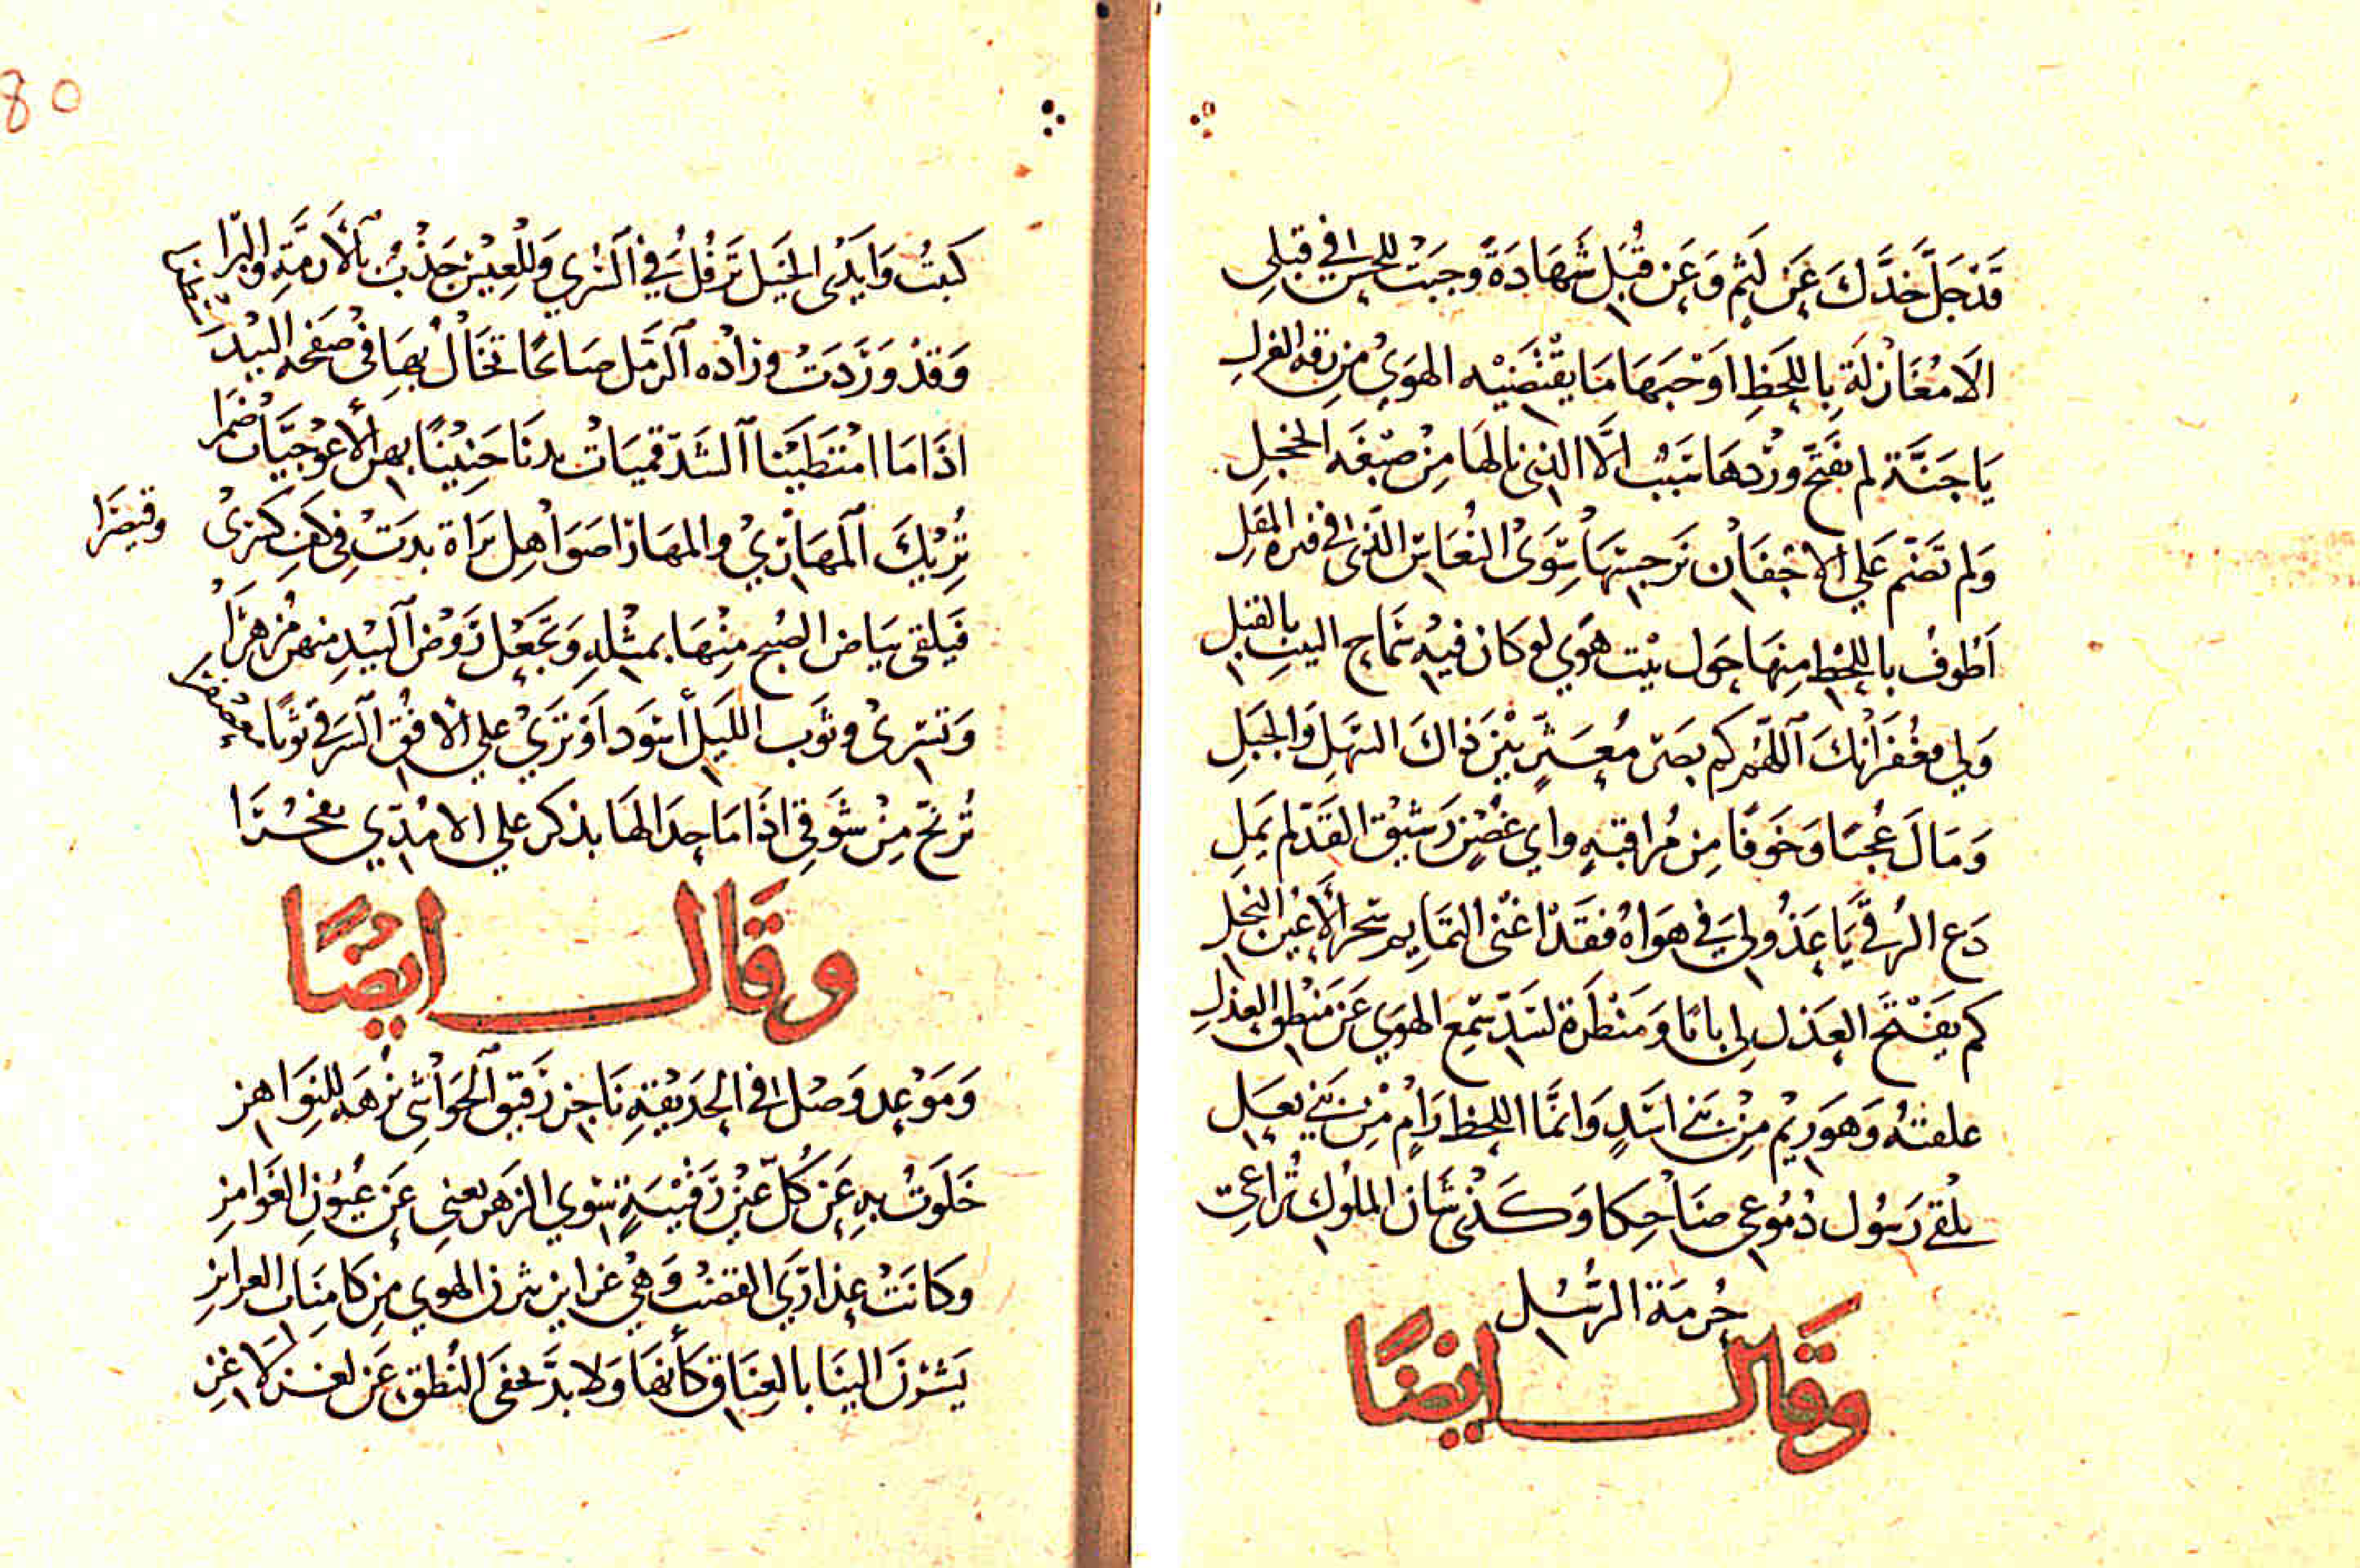 قَدْ جَلَّ خَدَّكَ عَن لَثْمٍ وَعَن قُبَلٍ شَهَادَةً وجبَتْ للحسن في قبلي
الا مُغَازلَةٍ بِاللحَظِ اوْجَبَهَا مَا يقْتَضيْه الهوَي من رقة الغزلِ
يَا جَنَّة لم يفَتّح ورْدهَا سَبَبٌ الَّا الذي نالهَا مِنْ صبْغَه الخجلِ
وَلم تَضُم عَلي الاجْفَان نرجسهَا سِوَى النعَاس الذى في فتره المقَلِ
اَطُوفُ باللحْظِ منِهَا حَول بيْت هوًي لو كان فيْه شمَاح البيتِ بالقبل
وَلي مغْفرانكَ اَللّهُم كم بصَر مُعسَرٍ بيْن ذاكَ السَّهلِ وَالجَبَلِ
وَمَالَ عُجْبًا وَخَوفًا مِن مُراقبهِ واي غصْنٍ رَشيْق القَدّ لم يمَلِ
دَع الرقي يَا عَذُولي في هَوَاهُ فقَدْ اغْنى التمَايم سحْر الأعْين النجلِ
كم يفَتّح العَذل لي بابًا وَمَنْطَرة لسَدّ سمْع الهوَي عَن مَنْطق العذلِ
علقتهُ وَهوَ ريْم مِنْ بَني اسَدٍ وَانمَّا اللحظ رَامٍ مْن بَني ثعَلِ
يلْقي رَسُول دُمُوعي ضَاحِكا وَكَذْى شَان الملُوك تُراعى
حُرمَة الرسُل
وَقَال ايضًا
كَبتُ وَايَدى الخَيل تَرفُلُ في السُري وَللْعِيْن جَذْبٌ بالأزمَّةِ والبرَا
وَقدْ وَرَّدَتْ وراده الرَمَل صَاحًا تخَالُ بهَا في صَفحه البيْد
اذَا مَا امْتَطيْنَا الشَدقميَات بدنَا حَنيْنًا بهن الأعْوجيَّات ضمَرا
تُريْكَ المهَاري والمهَارَا صَوَاهِل بَرَاة بدَتْ في كفِ كسْرَىْ وقيصَرَا
فيَلقى بيَاض الصُبح مِنْهَا بمثْلهِ وَتجعَل رَوْض البيْدِ منهن مُزهرَا
وَتَسْرىْ وثوَب الليَل أسْوَد اَوْ تَرَيْ علي الافُق الشرقي ثوْبًا معُصْفرا
تُرنّح مِنْ شَوقِي اذَا مَا حدَا لهَا بذكر علي الامْدِي مفخْرَا
وقال ايضًا
وَمَوْعِد وَصْل في الحَديْقةِ نَاجز رَقيق الحَوَاشي نزْهَه للنوَاهز
خَلَوتُ بهِ عَن كلّ عيْن رَقيْبَةٍ سوي الزهَر يعنى عَن عيُونِ الغوَامزِ
وكانَتْ عذارَي القضْبُ وَهيَْ غرايز شرن الهوي مِن كامِنَات الغرايزِ
يَشرْنَ الينَا بالعِنَاق كَأنهَا وَلا بدَّ يخفى النُطق عَن لغز لاغزِ